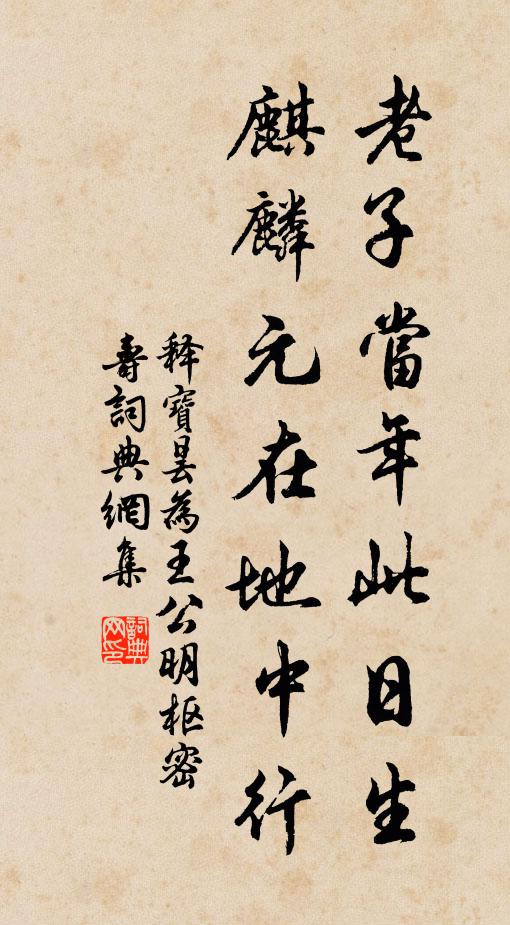 老子當年此日生
麒麟元在地中行
释寶曇為王公明枢密
壽詞典網集
詞典網印